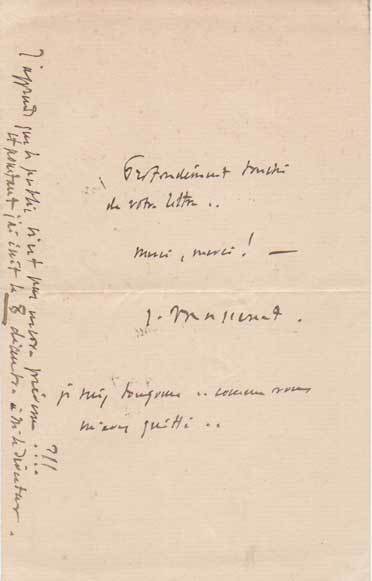 Profondément touché
de votre lettre ..
merci, merci ! —
J. Massenet.
je suis toujours .. comme vous
m'avez quitté ..
J'apprends que le public n'est pas encore prévenu ....?!!
et pourtant j'ai écrit le 8 à le directeur.